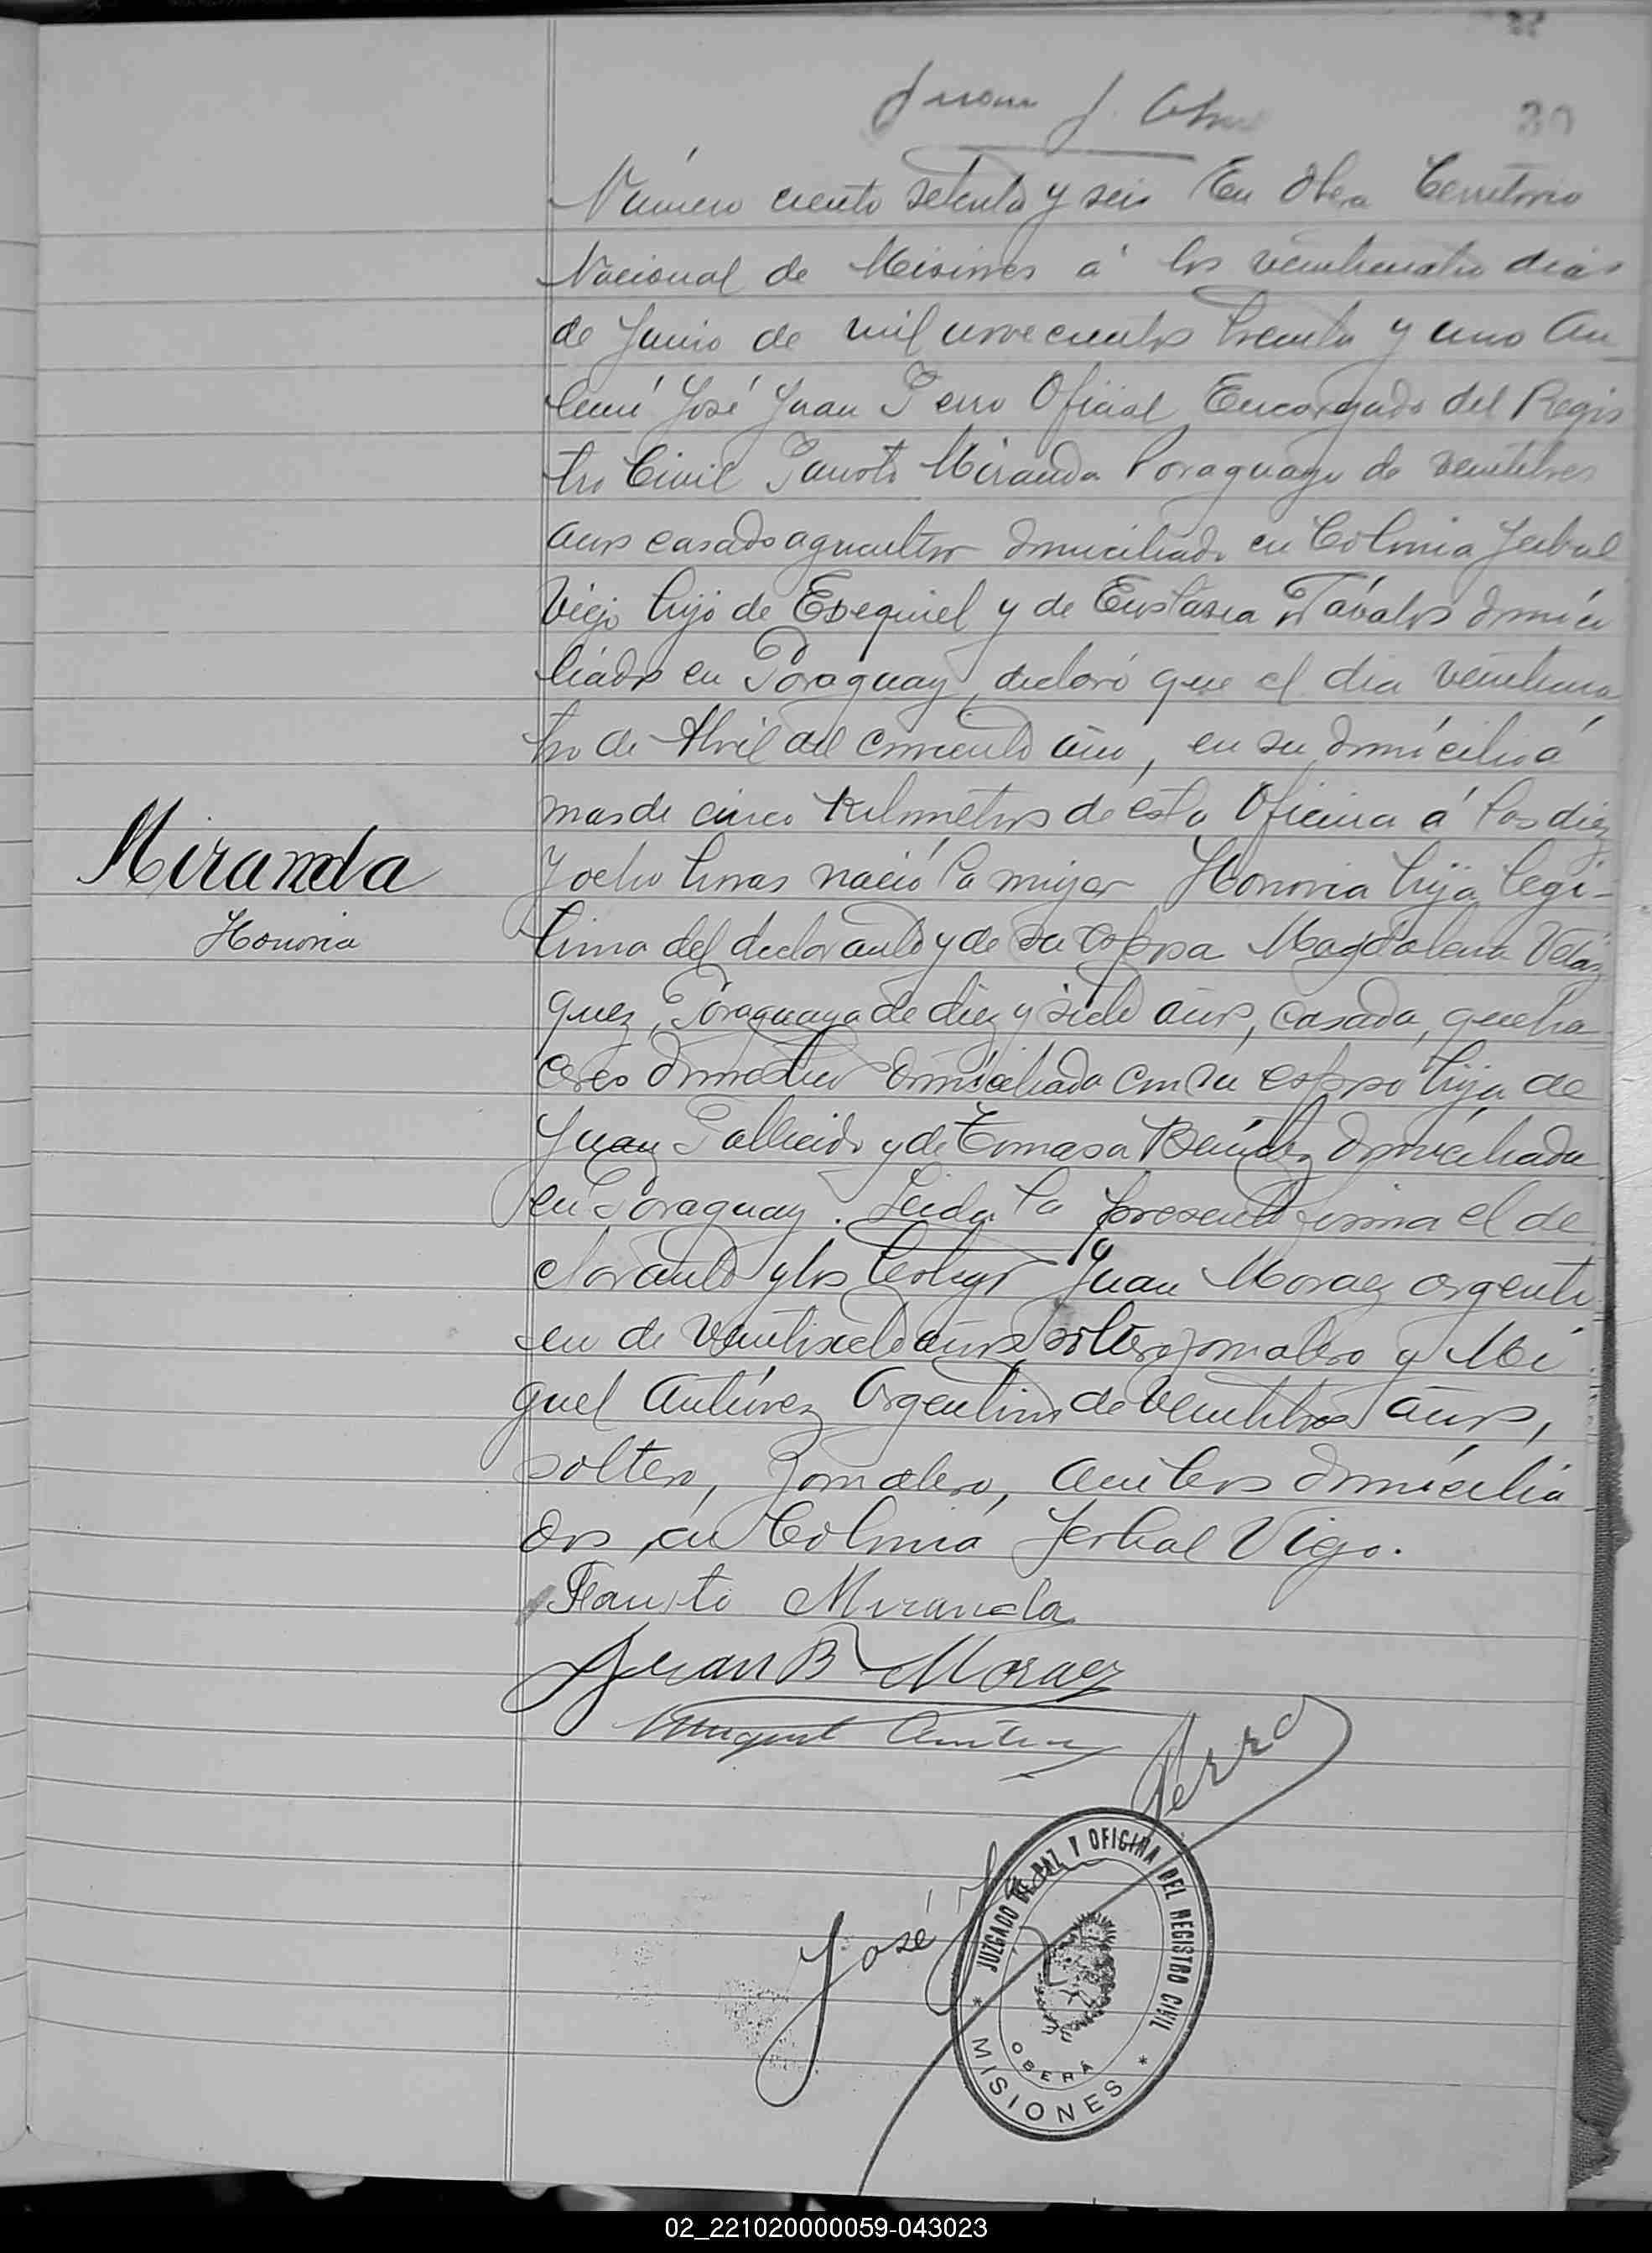 30
Juan J.
Número ciento setenta y seis En Obera Territorio
Nacional de Misiones á los veinticuatro dias
de Junio de mil novecientos treinta y uno An
temi José Juan Perro Oficial Encargado del Regis
tro Civil Fausto Miranda Paraguayo de veintitres
años casado agricultor domiciliado en Colonia Yerbal
Viejo hijo de Esequiel y de Eustasia Távalos domici
liados en Paraguay, declaró que el dia veinticua
tro de Abril del corriente año, en su domicilio á
mas de cinco Kilometros de esta Oficina á las diez
y ocho horas nació la mujer Honoria hija legi-
tima del declarante y de su esposa Magdalena Velaz
quez, Paraguaya de diez y siete años, casada, queha
ceres domesticos domiciliada con su esposo hija de
Juan Fallecido y de Tomasa Benitez domiciliada
en Paraguay. Leida la presente firma el de
clarante y los testigos Juan Moraez argenti
en de veintisiete años soltero jornalero y Mi
guel Antúnez Argentino de veintitres años,
soltero, Jornalero, ambos domicilia
dos en Colonia Yerbal Viejo.
Miranda
Honoria
Fausto Miranda
Juan B Moraez
Miguel
José J Perro
JUZGADO DE PAZ Y OFICINA DEL REGISTRO CIVIL
OBERA
* MISIONES *
02_221020000059-043023